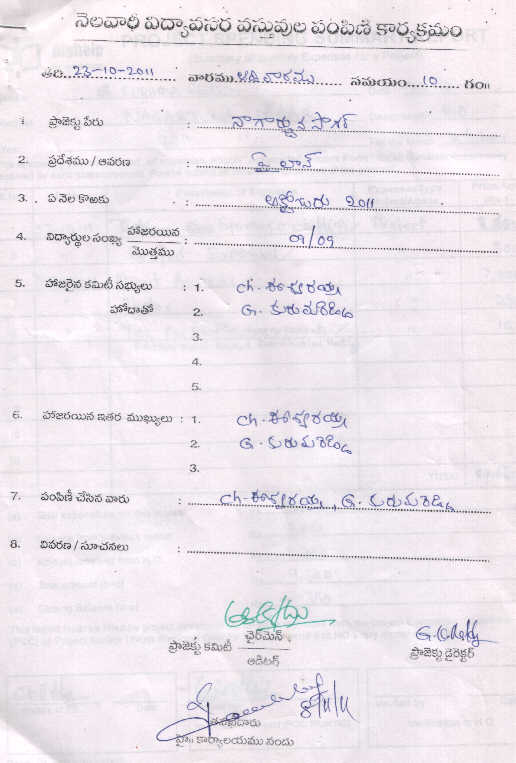 నెలవారీ విద్యావసర వస్తువుల పంపిణీ కార్యక్రమం
తేది. 23-10-2011 వారము ఆదివారము సమయం 10 గం॥
1. ప్రాజెక్టు పేరు : నాగార్జున సాగర్
2. ప్రదేశము / ఆవరణ : పైలాన్
3. ఏ నెల కొఱకు : అక్టోబరు 2011
4. విద్యార్థుల సంఖ్య హాజరయిన / మొత్తము : 09/09
5. హాజరైన కమిటీ సభ్యులు : 1. Ch. ఈశ్వరయ్య
హోదాతో 2. G. కురుమారెడ్డి
3.
4.
5.
6. హాజరయిన ఇతర ముఖ్యులు : 1. Ch. ఈశ్వరయ్య
2. G. కురుమారెడ్డి
3.
7. పంపిణీ చేసిన వారు : Ch. ఈశ్వరయ్య, G. కురుమారెడ్డి
8. వివరణ / సూచనలు :
ప్రాజెక్టు కమిటీ ఛైర్‌మెన్ / ఆడిటర్
G.C. Reddy
ప్రాజెక్టు డైరెక్టర్
8/11/11
తనిఖీదారు
హై॥ కార్యాలయము నందు